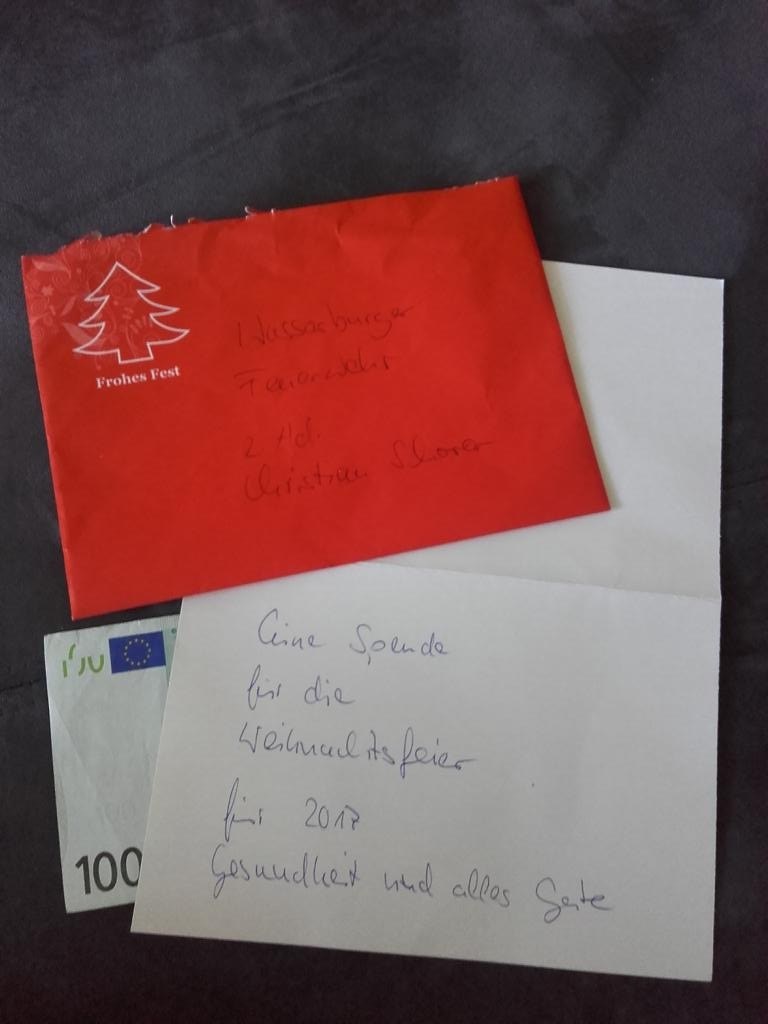 Frohes Fest
Wasserburger
Feuerwehr
z Hd.
Christian Schorer
Eine Spende
für die
Weihnachtsfeier
für 2017
Gesundheit und alles Gute
100